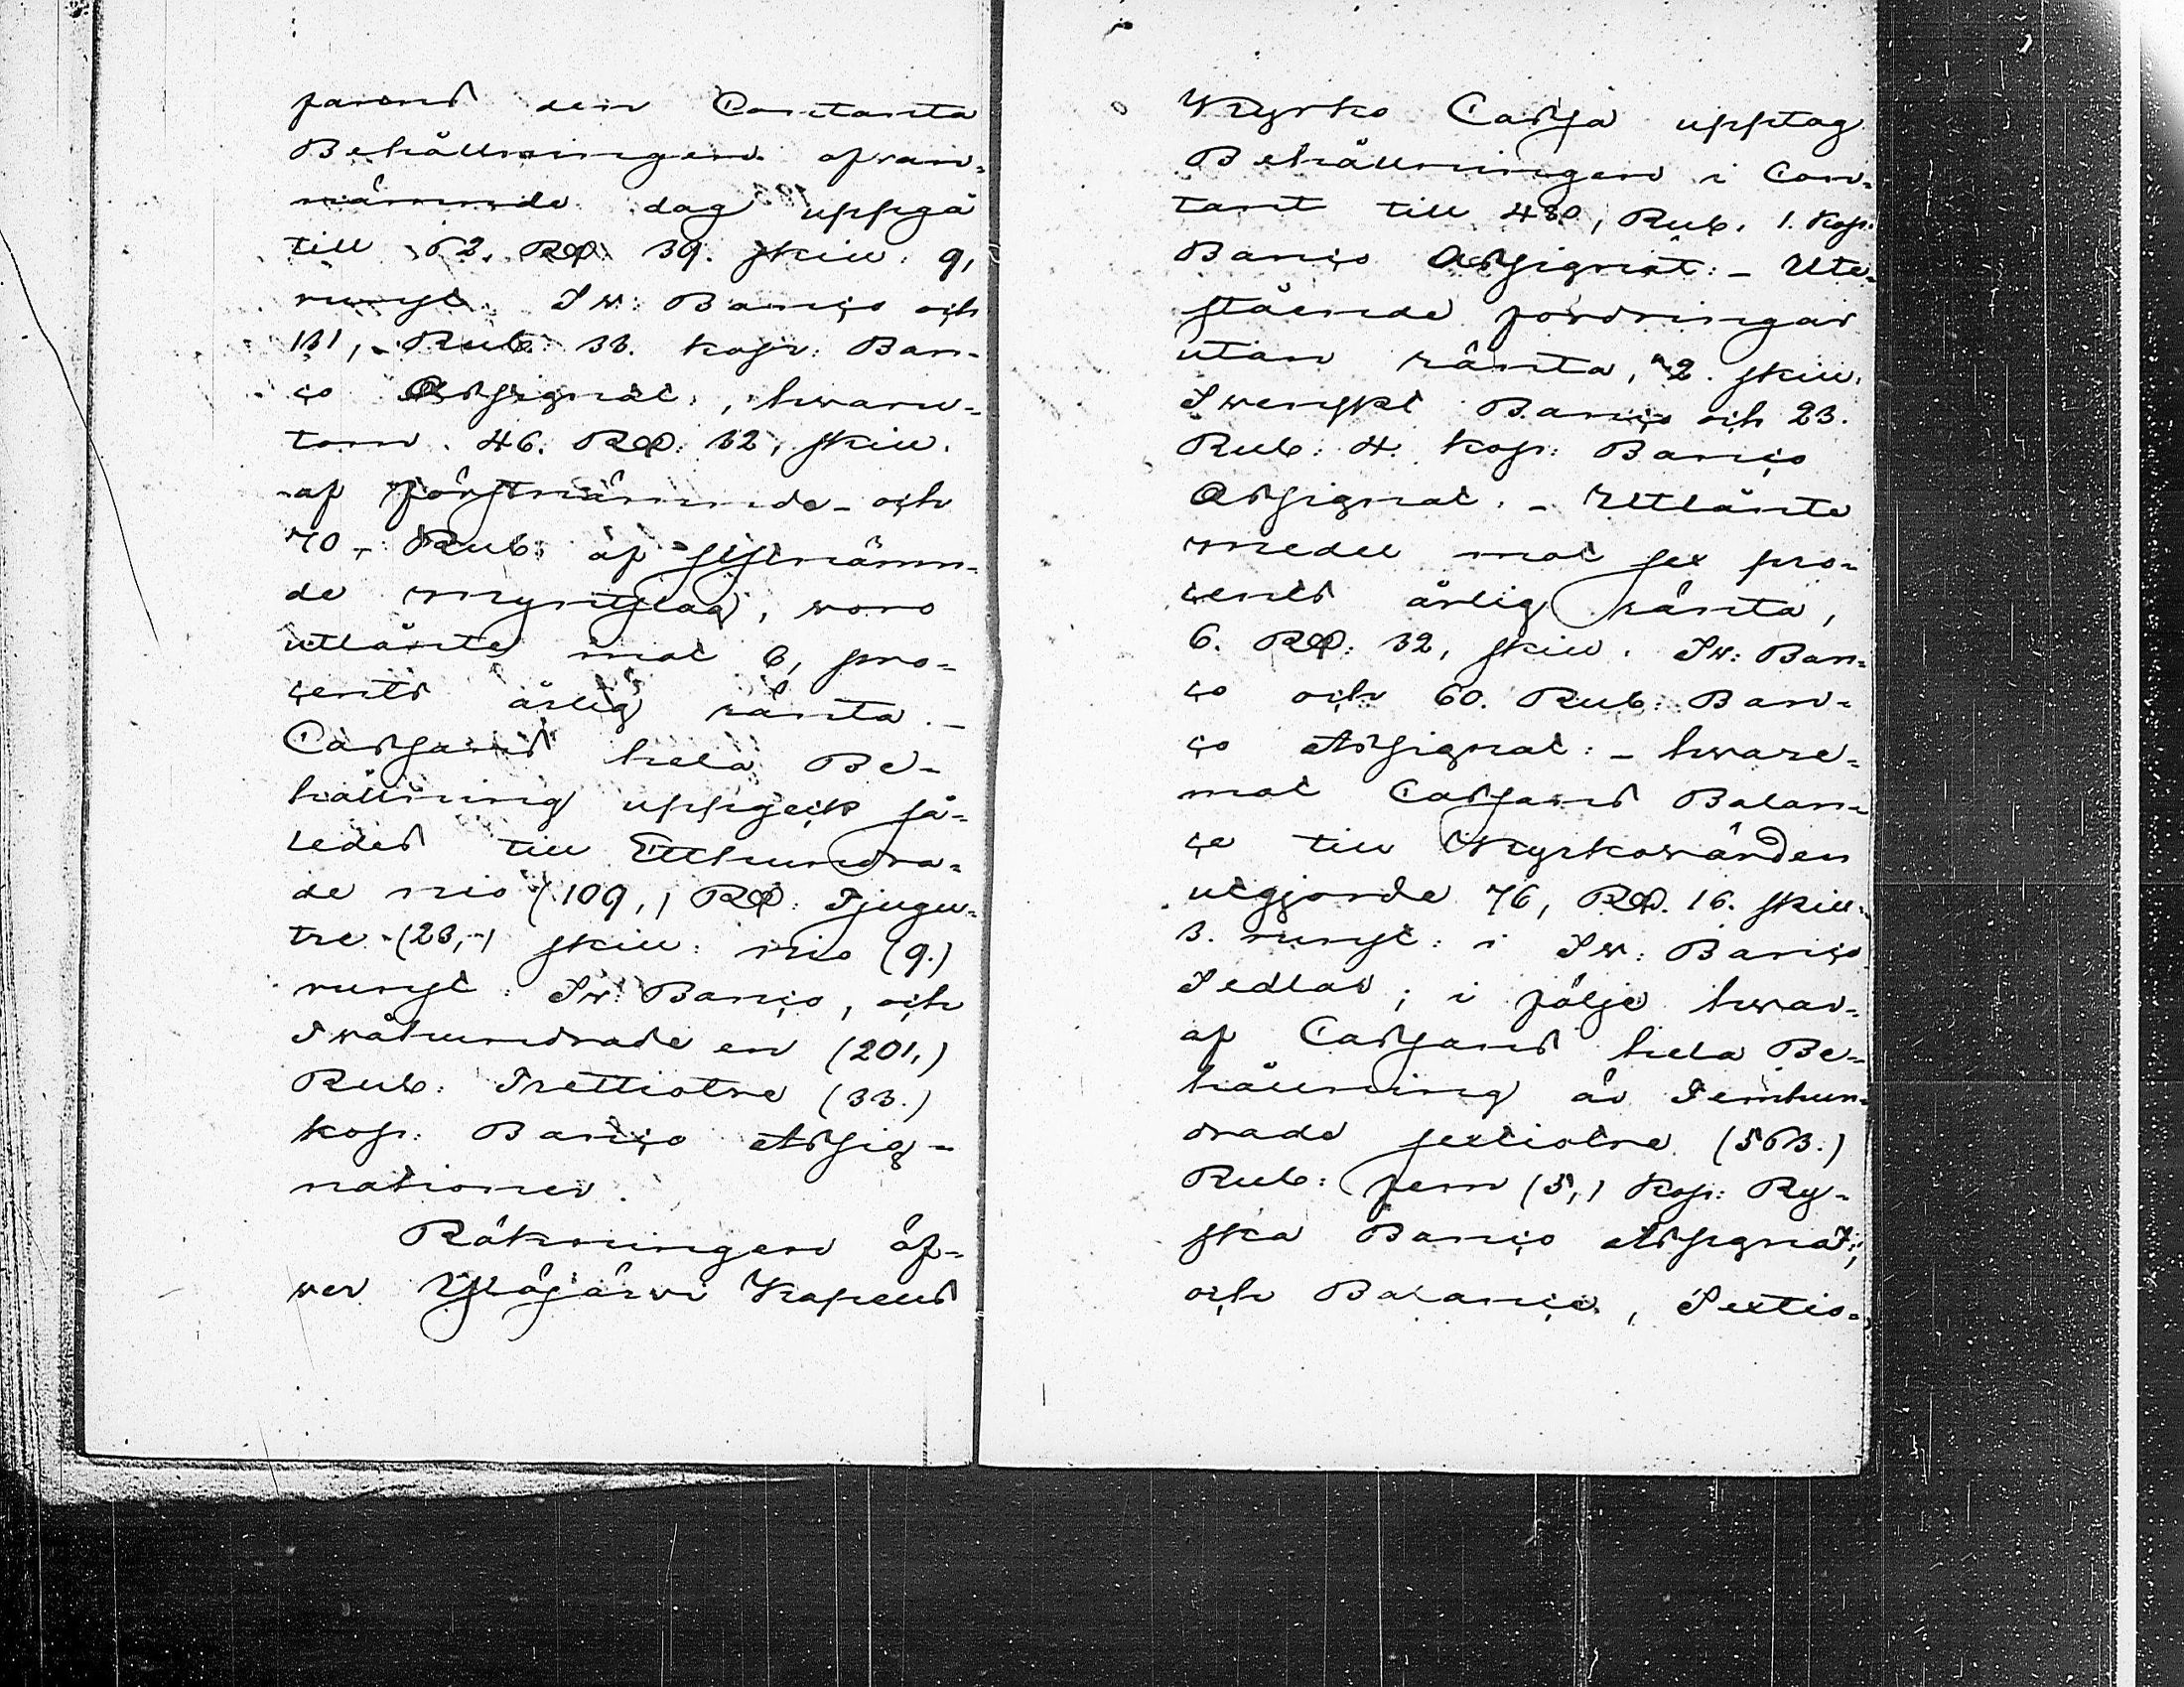 farens den Contanta
Behållningen ofvan-
nämnde dag uppgå
till 62. RD. 39. skill. 9,
runst. Sw: Banço och
131,- Rub: 33. kop: Ban-
ço Assignat:, hvaru-
tom. 46. RD: 32, skill.
af förstnämnde - och
70,- Rub: af sistnämn-
de myntslag, woro
utlånte mot 6, pro-
cents årlig ränta. -
Cassans hela Be-
hållning uppgick så-
ledes till Etthundra-
de nio (109,) RD. Tjugu-
tre (23,-) skill: nio (9.)
runst: Sw: Banço, och
Twåhundrade en (201,)
Rub: Trettiotre (33.)
kop: Banço Assig-
nationer.
Räkningen öf-
wer Ylöjärwi Kapells
Kyrko Cassa upptog
Behållningen i Con-
tant till 480, Rub. 1. Kop.
Banço Assignat: - Ute-
stående fordringar
utan ränta, 2. skill.
Swenskt Banço och 23.
Rub: 4. kop: Banço
Assignat. - Utlånte
medel mot sex pro-
cents årlig ränta,
6. RD: 32, skill. Sw: Ban-
ço och 60. Rub: Ban-
ço Assignat: - hware-
mot Cassans Balan-
ce till Kyrkowärden
utgjorde 76, RD. 16. skill:
3. runst: i Sw: Banço
Sedlar; i följe hwar-
af Cassans hela Be-
hållning är Femhun-
drade sextiotre (563.)
Rub: fem (5,) Kop: Ry-
ska Banço Assignat:,
och Balance, Sextio-